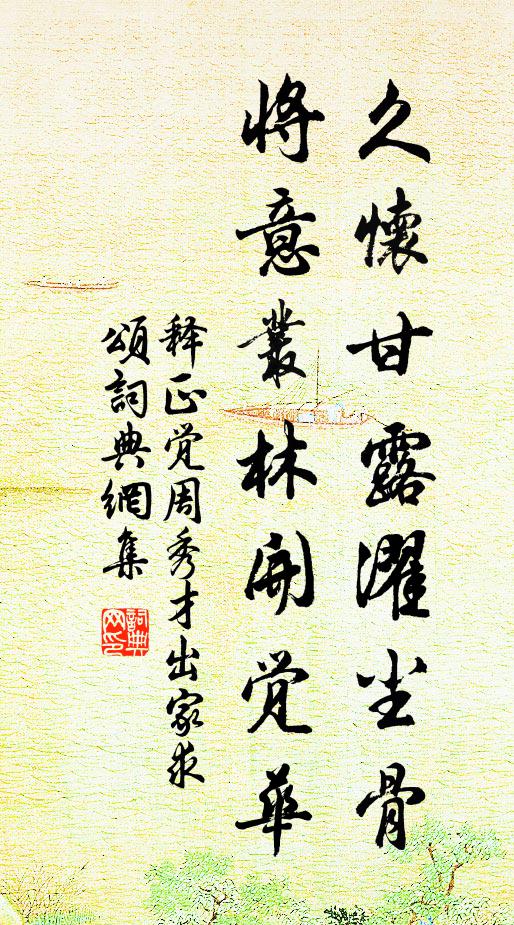 久懷甘露濯尘骨
將意叢林開觉華
释正觉周秀才出家求
頌詞典網集
詞典
网印